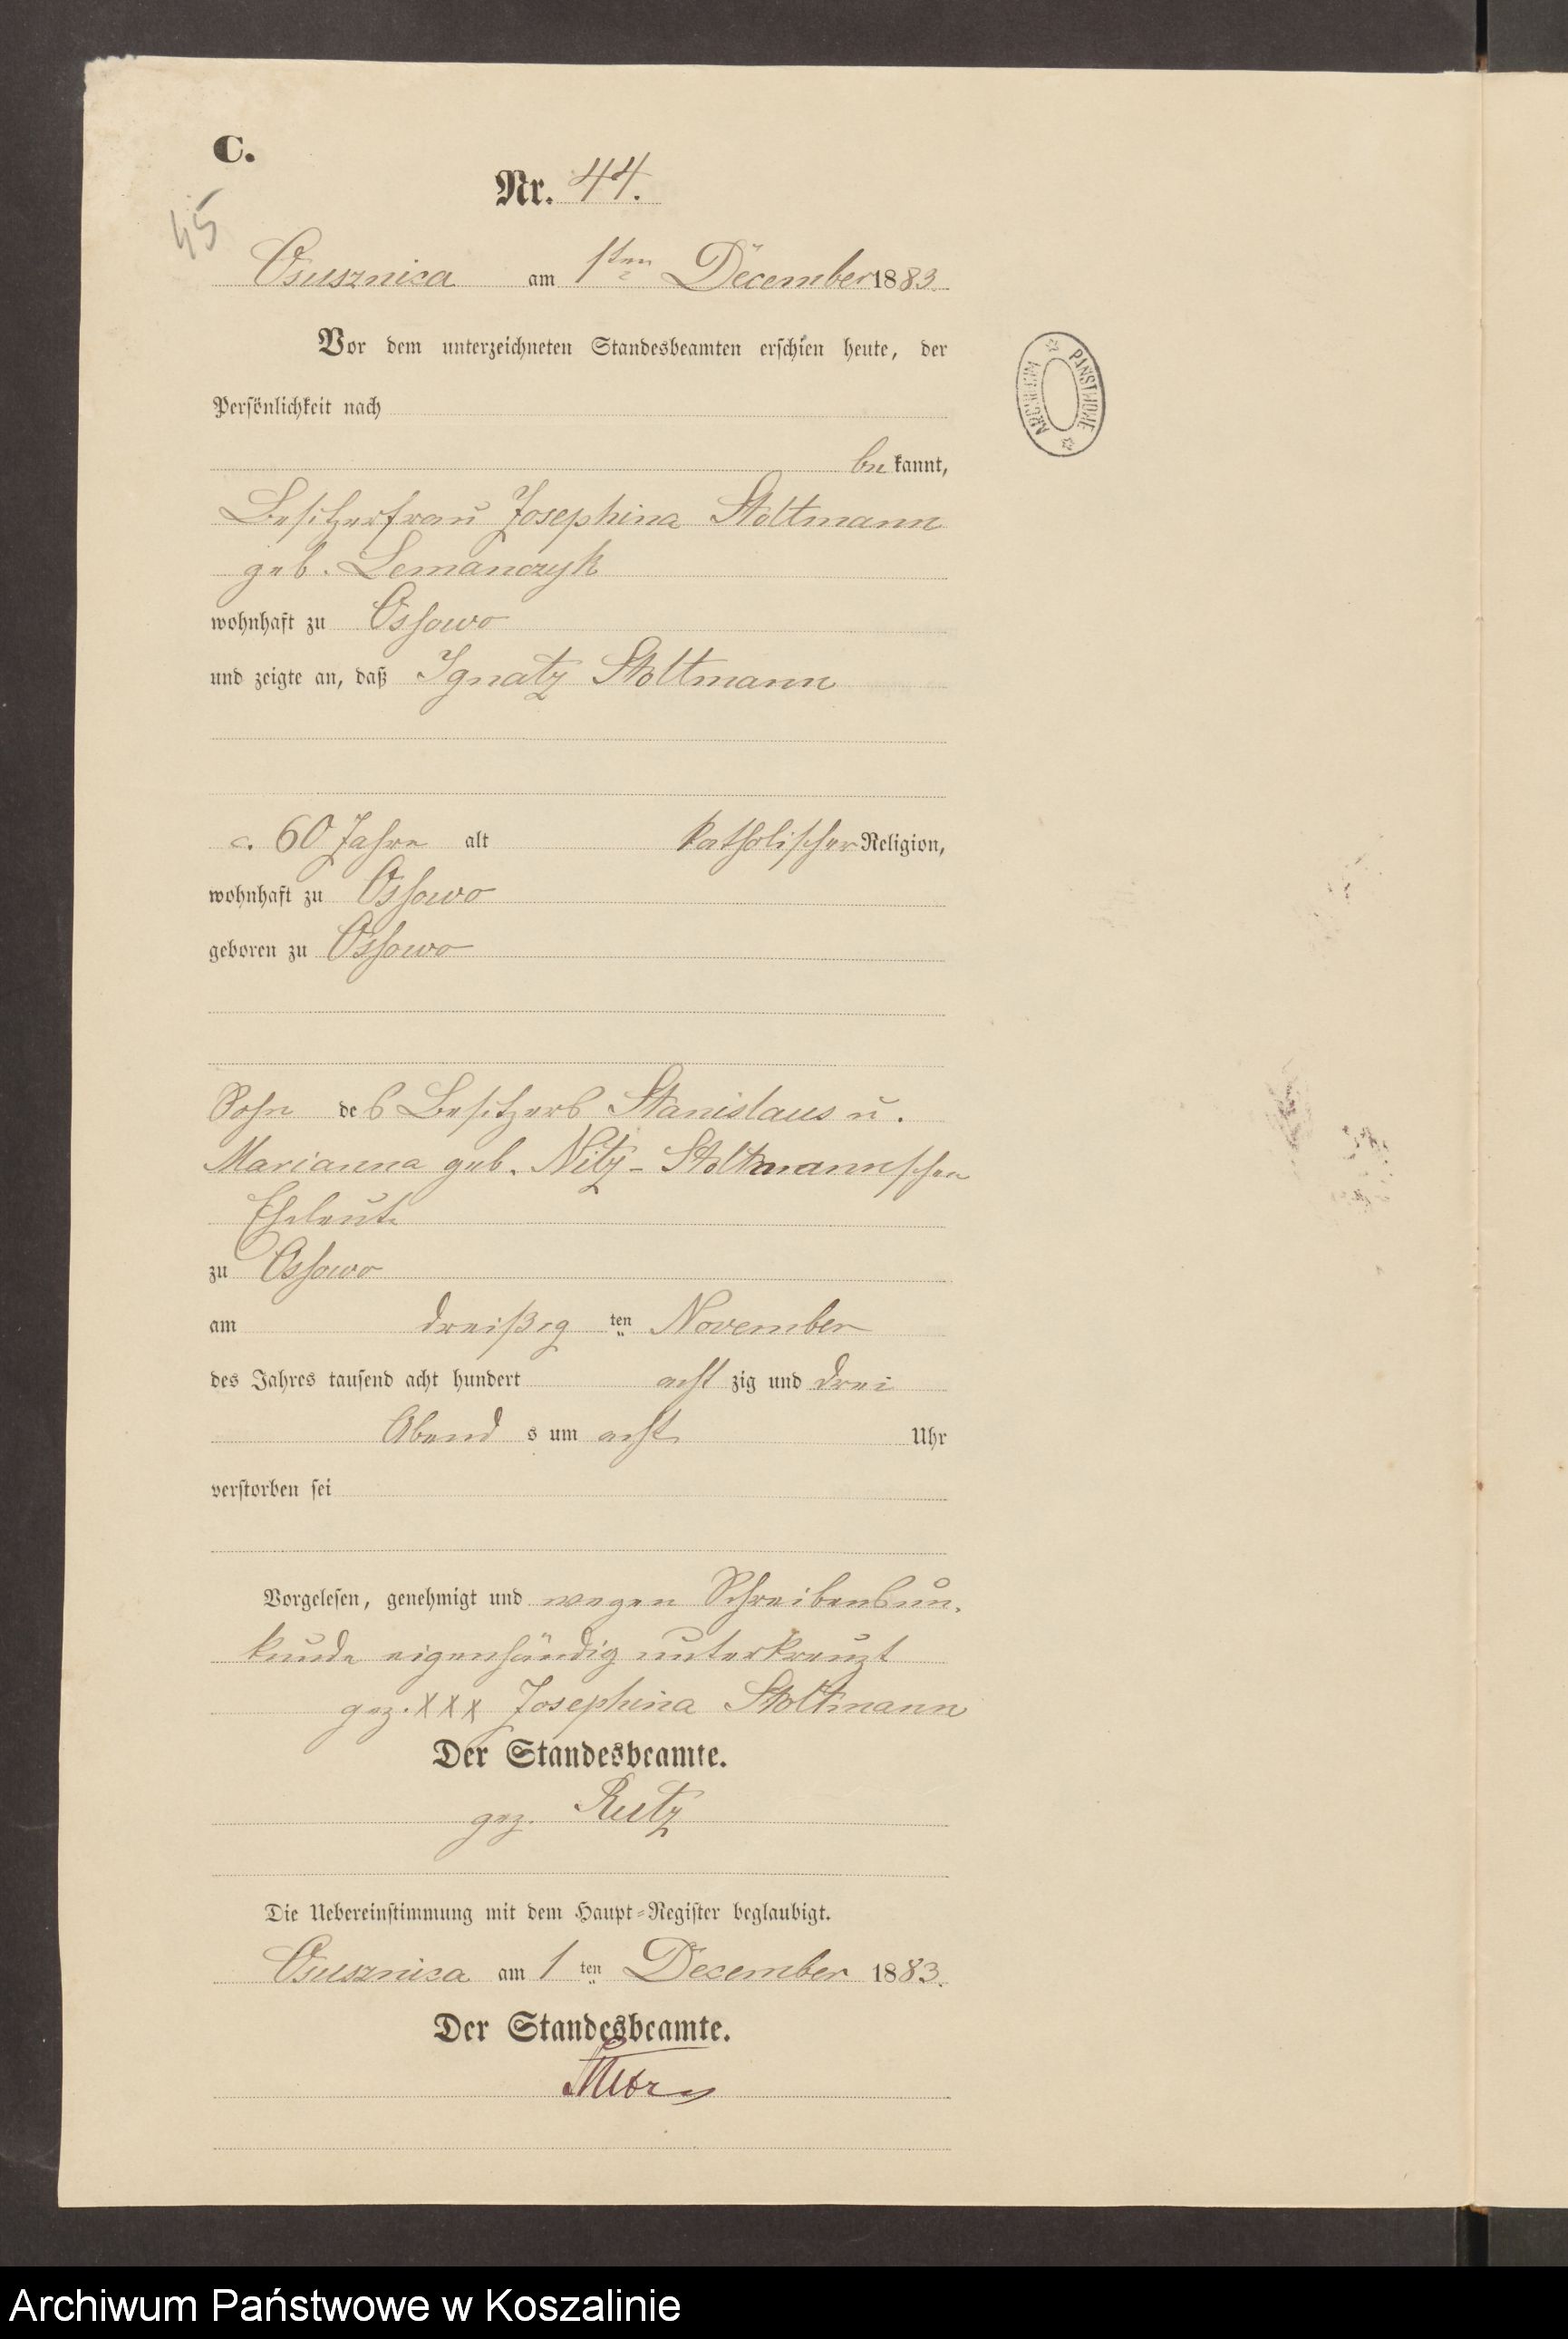 C.
Nr. 44.
45
Osusznica am 1ten December 1883.
Vor dem unterzeichneten Standesbeamten erschien heute, der
Persönlichkeit nach
bekannt,
Besitzerfrau Josephina Stoltmann
geb. Lemanczyk
wohnhaft zu Ossowo
und zeigte an, daß Ignatz Stoltmann
c. 60 Jahre alt katholischer Religion,
wohnhaft zu Ossowo
geboren zu Ossowo
Sohn des Besitzers Stanislaus u.
Marianna geb. Nitz-Stoltmannschen
Eheleute
zu Ossowo
am dreißigten November
des Jahres tausend acht hundert achtzig und drei
Abends um acht Uhr
verstorben sei
Vorgelesen, genehmigt und wegen Schreibensun-
kunde eigenhändig unterkreuzt
gez. XXX Josephina Stoltmann
Der Standesbeamte.
gez. Rutz
Die Uebereinstimmung mit dem Haupt-Register beglaubigt.
Osusznica am 1ten December 1883.
Der Standesbeamte.
ARCHIWUM PAŃSTWOWE
Archiwum Państwowe w Koszalinie